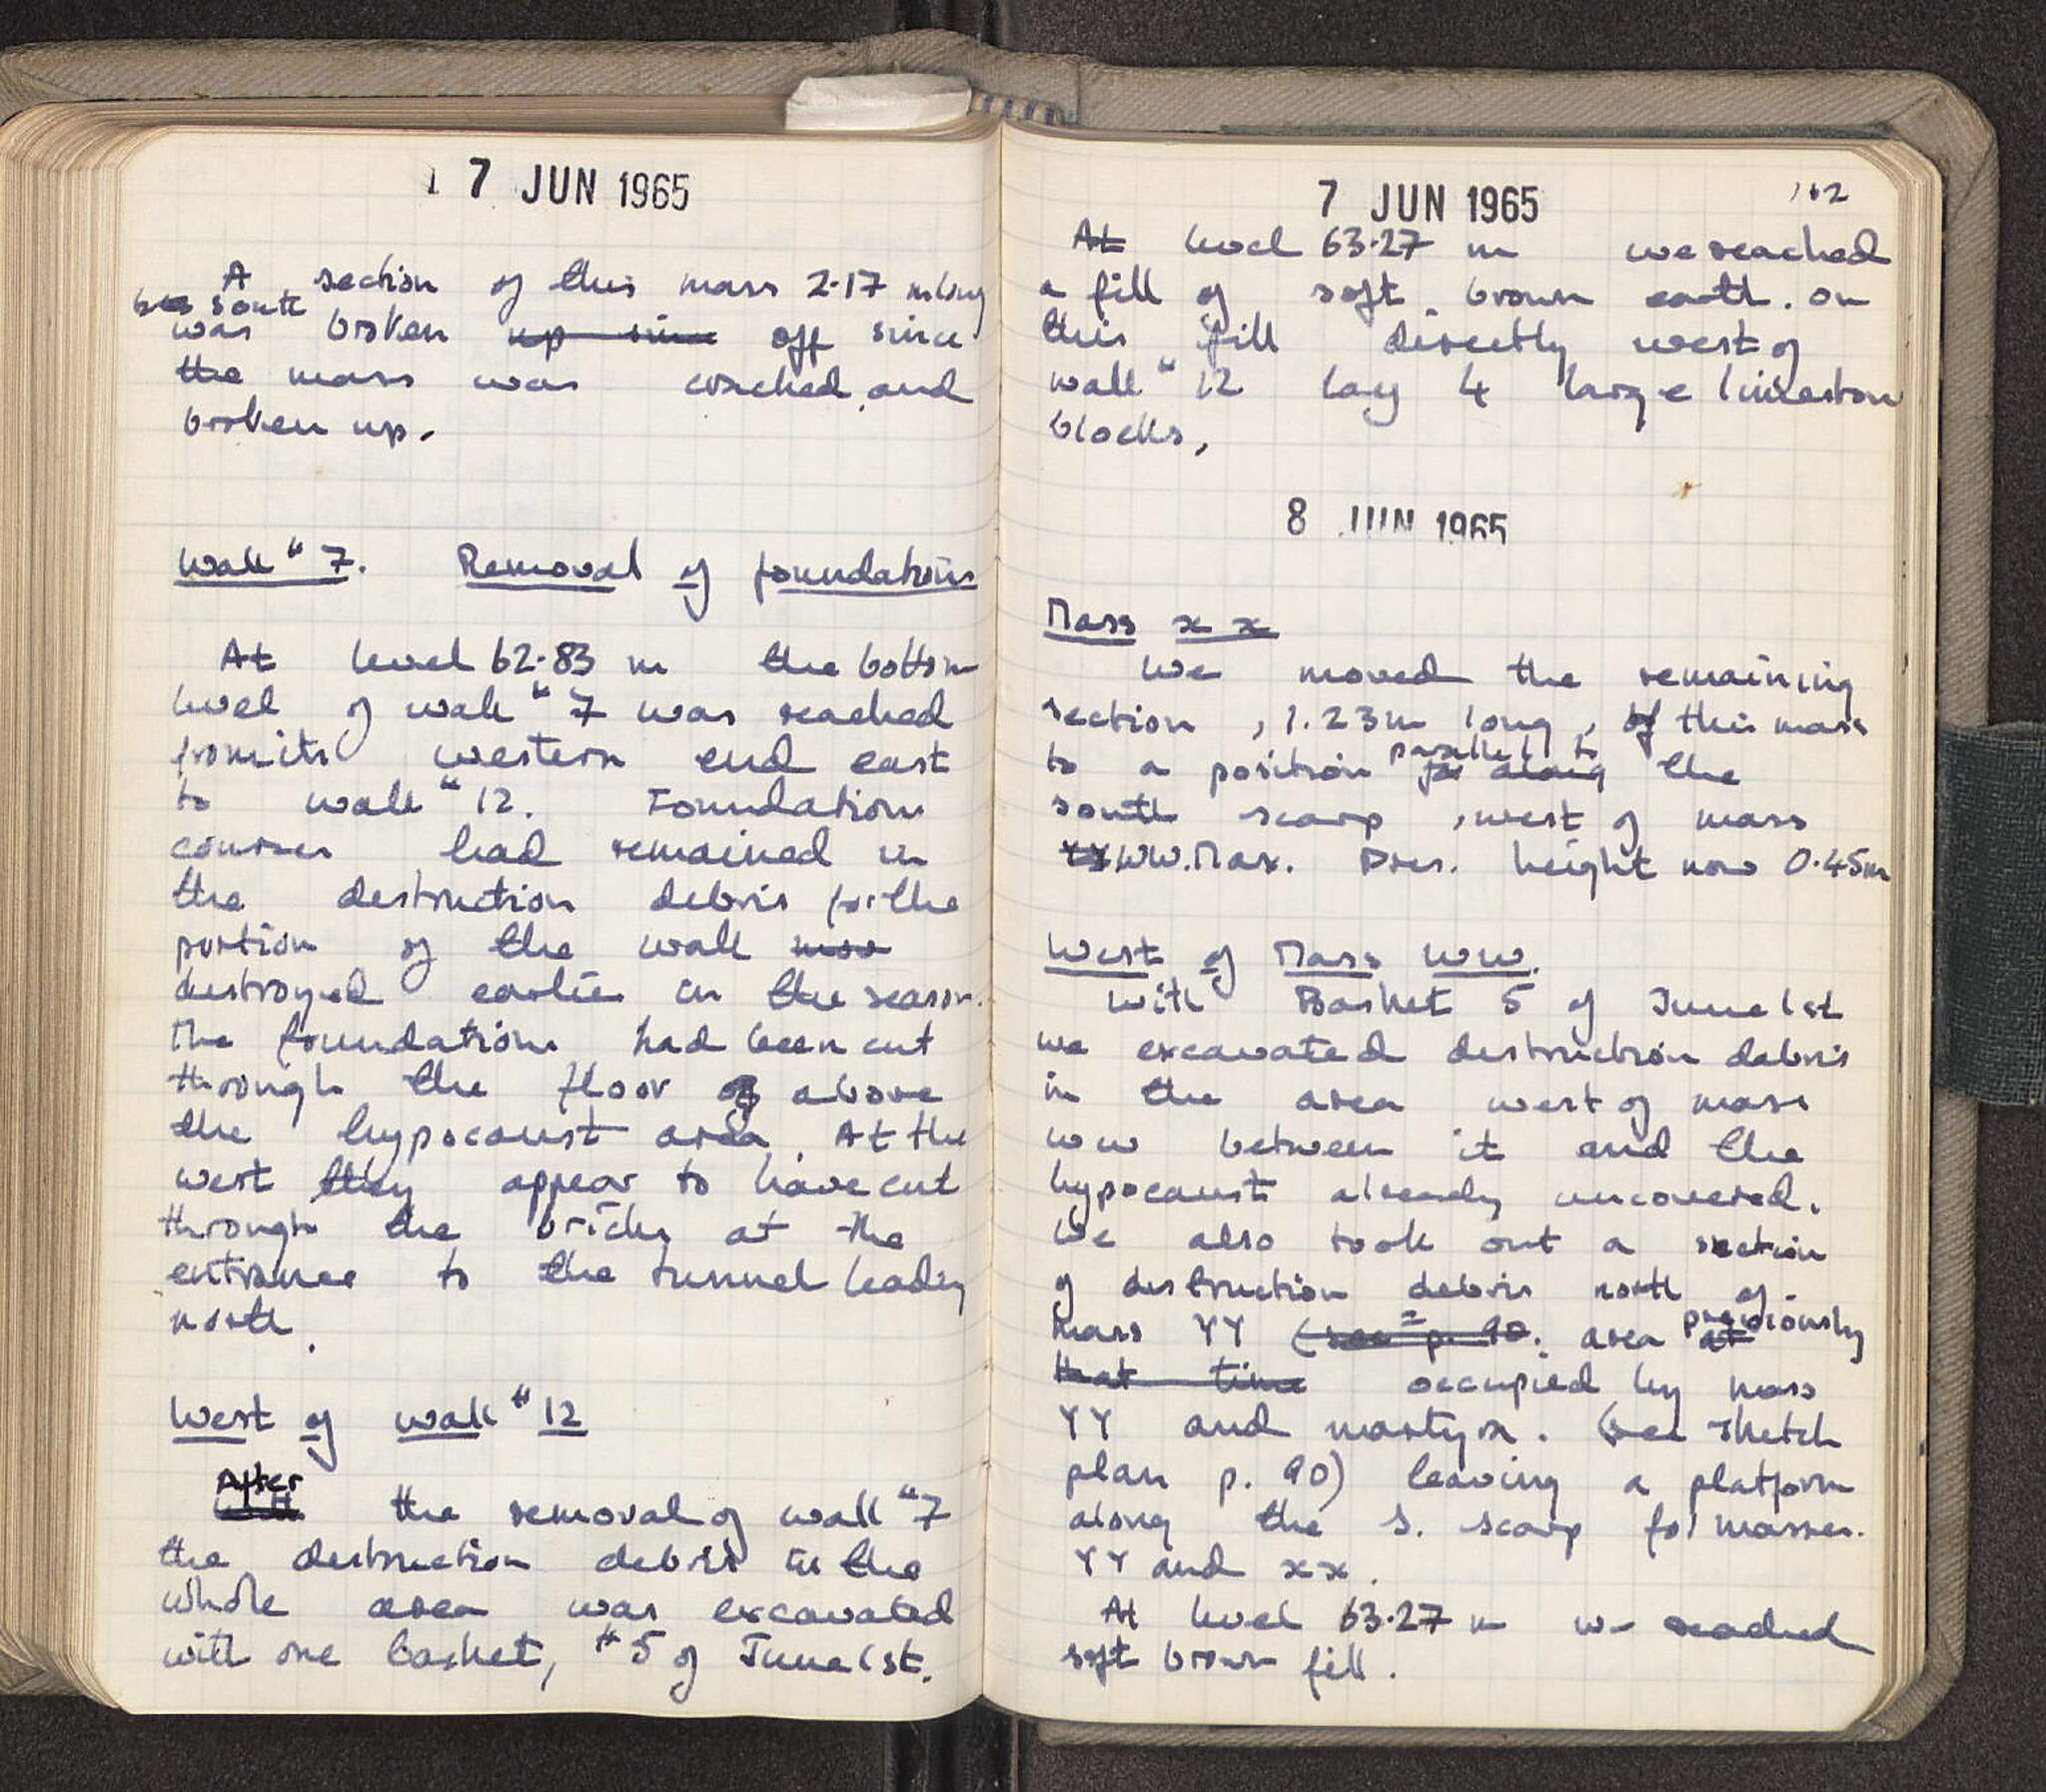 7 JUN 1965
A section of this mass 2.17 m long
south
was broken up since off since
the mass was cracked and
broken up.
Wall #7. Removal of foundations
At level 62.83 m the bottom
level of wall #7 was reached
from its western end east
to wall #12. Foundation
courses had remained in
the destruction debris for the
portion of the wall
destroyed earlier in the season.
The foundations had been cut
through the floor of above
the hypocaust area. At the
west they appear to have cut
through the bricks at the
entrance to the tunnel leading
north.
West of wall #12
After
the removal of wall #7
the destruction debris in the
whole area was excavated
with one basket, #5 of June 1st.
7 JUN 1965
102
At level 63.27 m we reached
a fill of soft brown earth. On
this fill directly west of
wall #12 lay 4 large limeston
blocks,
8 JUN 1965
Mass xx
We moved the remaining
section, 1.23m long, of this mass
parallel to
to a position along the
south scarp, west of mass
WW. Max. Pres. height now 0.45m
West of Mass WW.
With Basket 5 of June 1st
we excavated destruction debris
in the area west of mass
WW between it and the
hypocaust already uncovered.
We also took out a section
of destruction debris north of
previously
mass YY (see p. 90. area at
that time occupied by mass
YY and martyra. (see sketch
plan p. 90) leaving a platform
along the S. scarp for masses.
YY and xx.
At level 63.27 m we reached
soft brown fill.